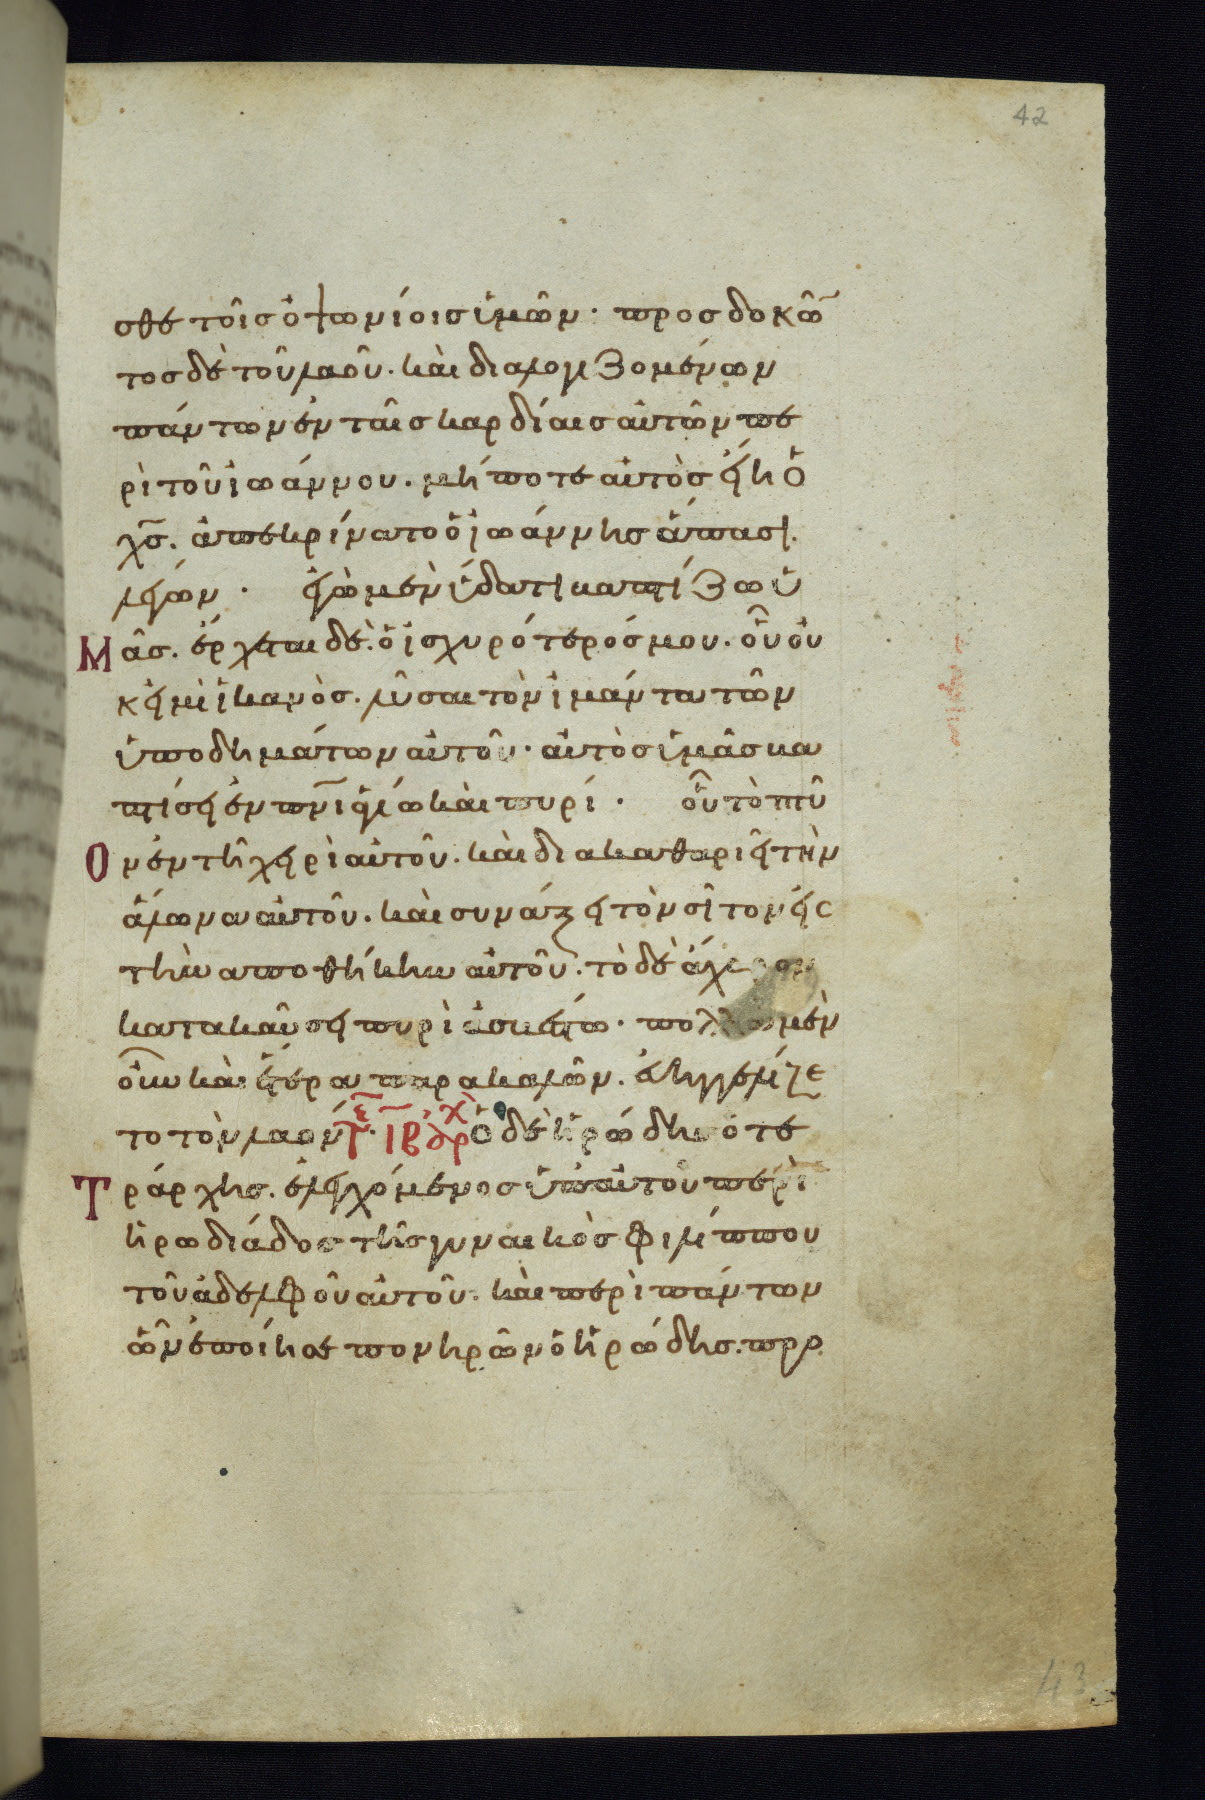 42
σθε τοῖς ὀψωνίοις ὑμῶν · προσδοκῶ̅
τος δὲ τοῦ λαοῦ · καὶ διαλογιζομένων
πάντων ἐν ταῖς καρδίαις αὐτῶν πε
ρὶ τοῦ ἰωάννου · μήποτε αὐτὸς εἴη ὁ
χ̅σ̅ · ἀπεκρίνατο ὁ ἰωάννης ἅπασι ·
λέγων · ἐγὼ μὲν ὕδατι βαπτίζω ὑ
Μᾶς · ἔρχεται δὲ · ὁ ἰσχυρότερός μου · οὗ οὐ
κ εἰμὶ ἱκανὸς · λῦσαι τὸν ἱμάντα τῶν
ὑποδημάτων αὐτοῦ · αὐτὸς ὑμᾶς βα
πτίσει ἐν π̅ν̅ι ἁγίω καὶ πυρί · οὗ τὸ πτύ
Ον ἐν τῆ χειρὶ αὐτοῦ · καὶ διακαθαριεῖ τὴν
ἅλωνα αὐτοῦ · καὶ συνάξει τὸν σῖτον εἰς
τὴν αποθήκην αὐτοῦ · τὸ δὲ ἄχυρον
κατακαύσει πυρὶ ἀσβέστω · πολλὰ μὲν
οὖν καὶ ἕτερα παρακαλῶν · ἐυηγγελίζε
το τὸν λαόν · Ὁ δὲ ἡρώδης ὁ τε
Τράρχης · ἐλεγχόμενος ὑπ' αὐτοῦ περὶ
ἡρωδιάδος τῆς γυναικὸς φιλίππου
τοῦ ἀδελφοῦ αὐτοῦ · καὶ περὶ πάντων
ὧν ἐποίησε πονηρῶν ὁ ἡρώδης · προ
43